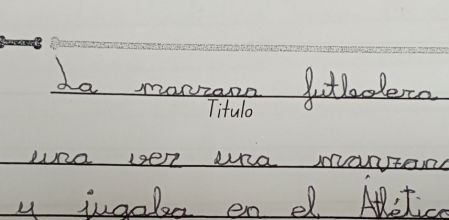 La manzana futbolera
Titulo
una vez una manzana
y jugaba en el Atlético